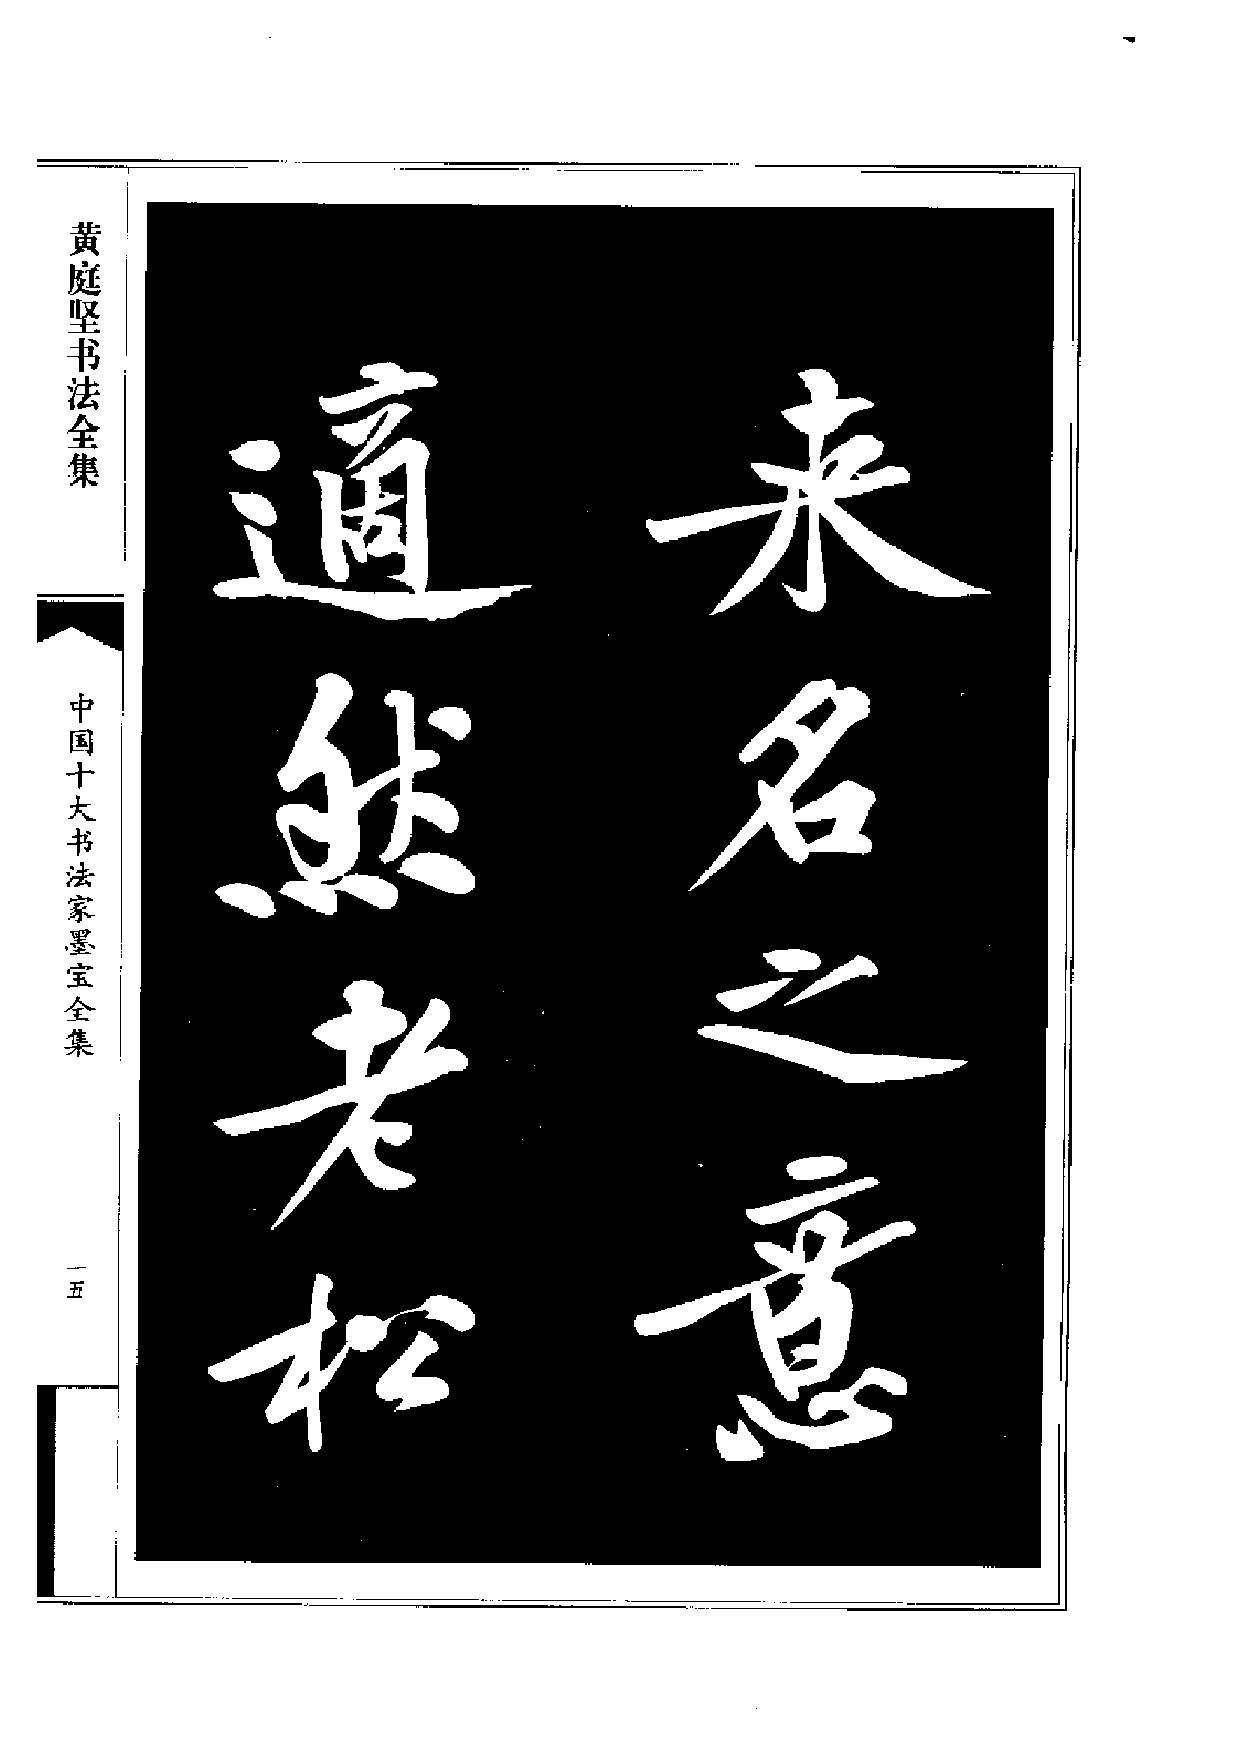 来名之意
適然老松
黄庭坚书法全集
中国十大书法家墨宝全集
一五